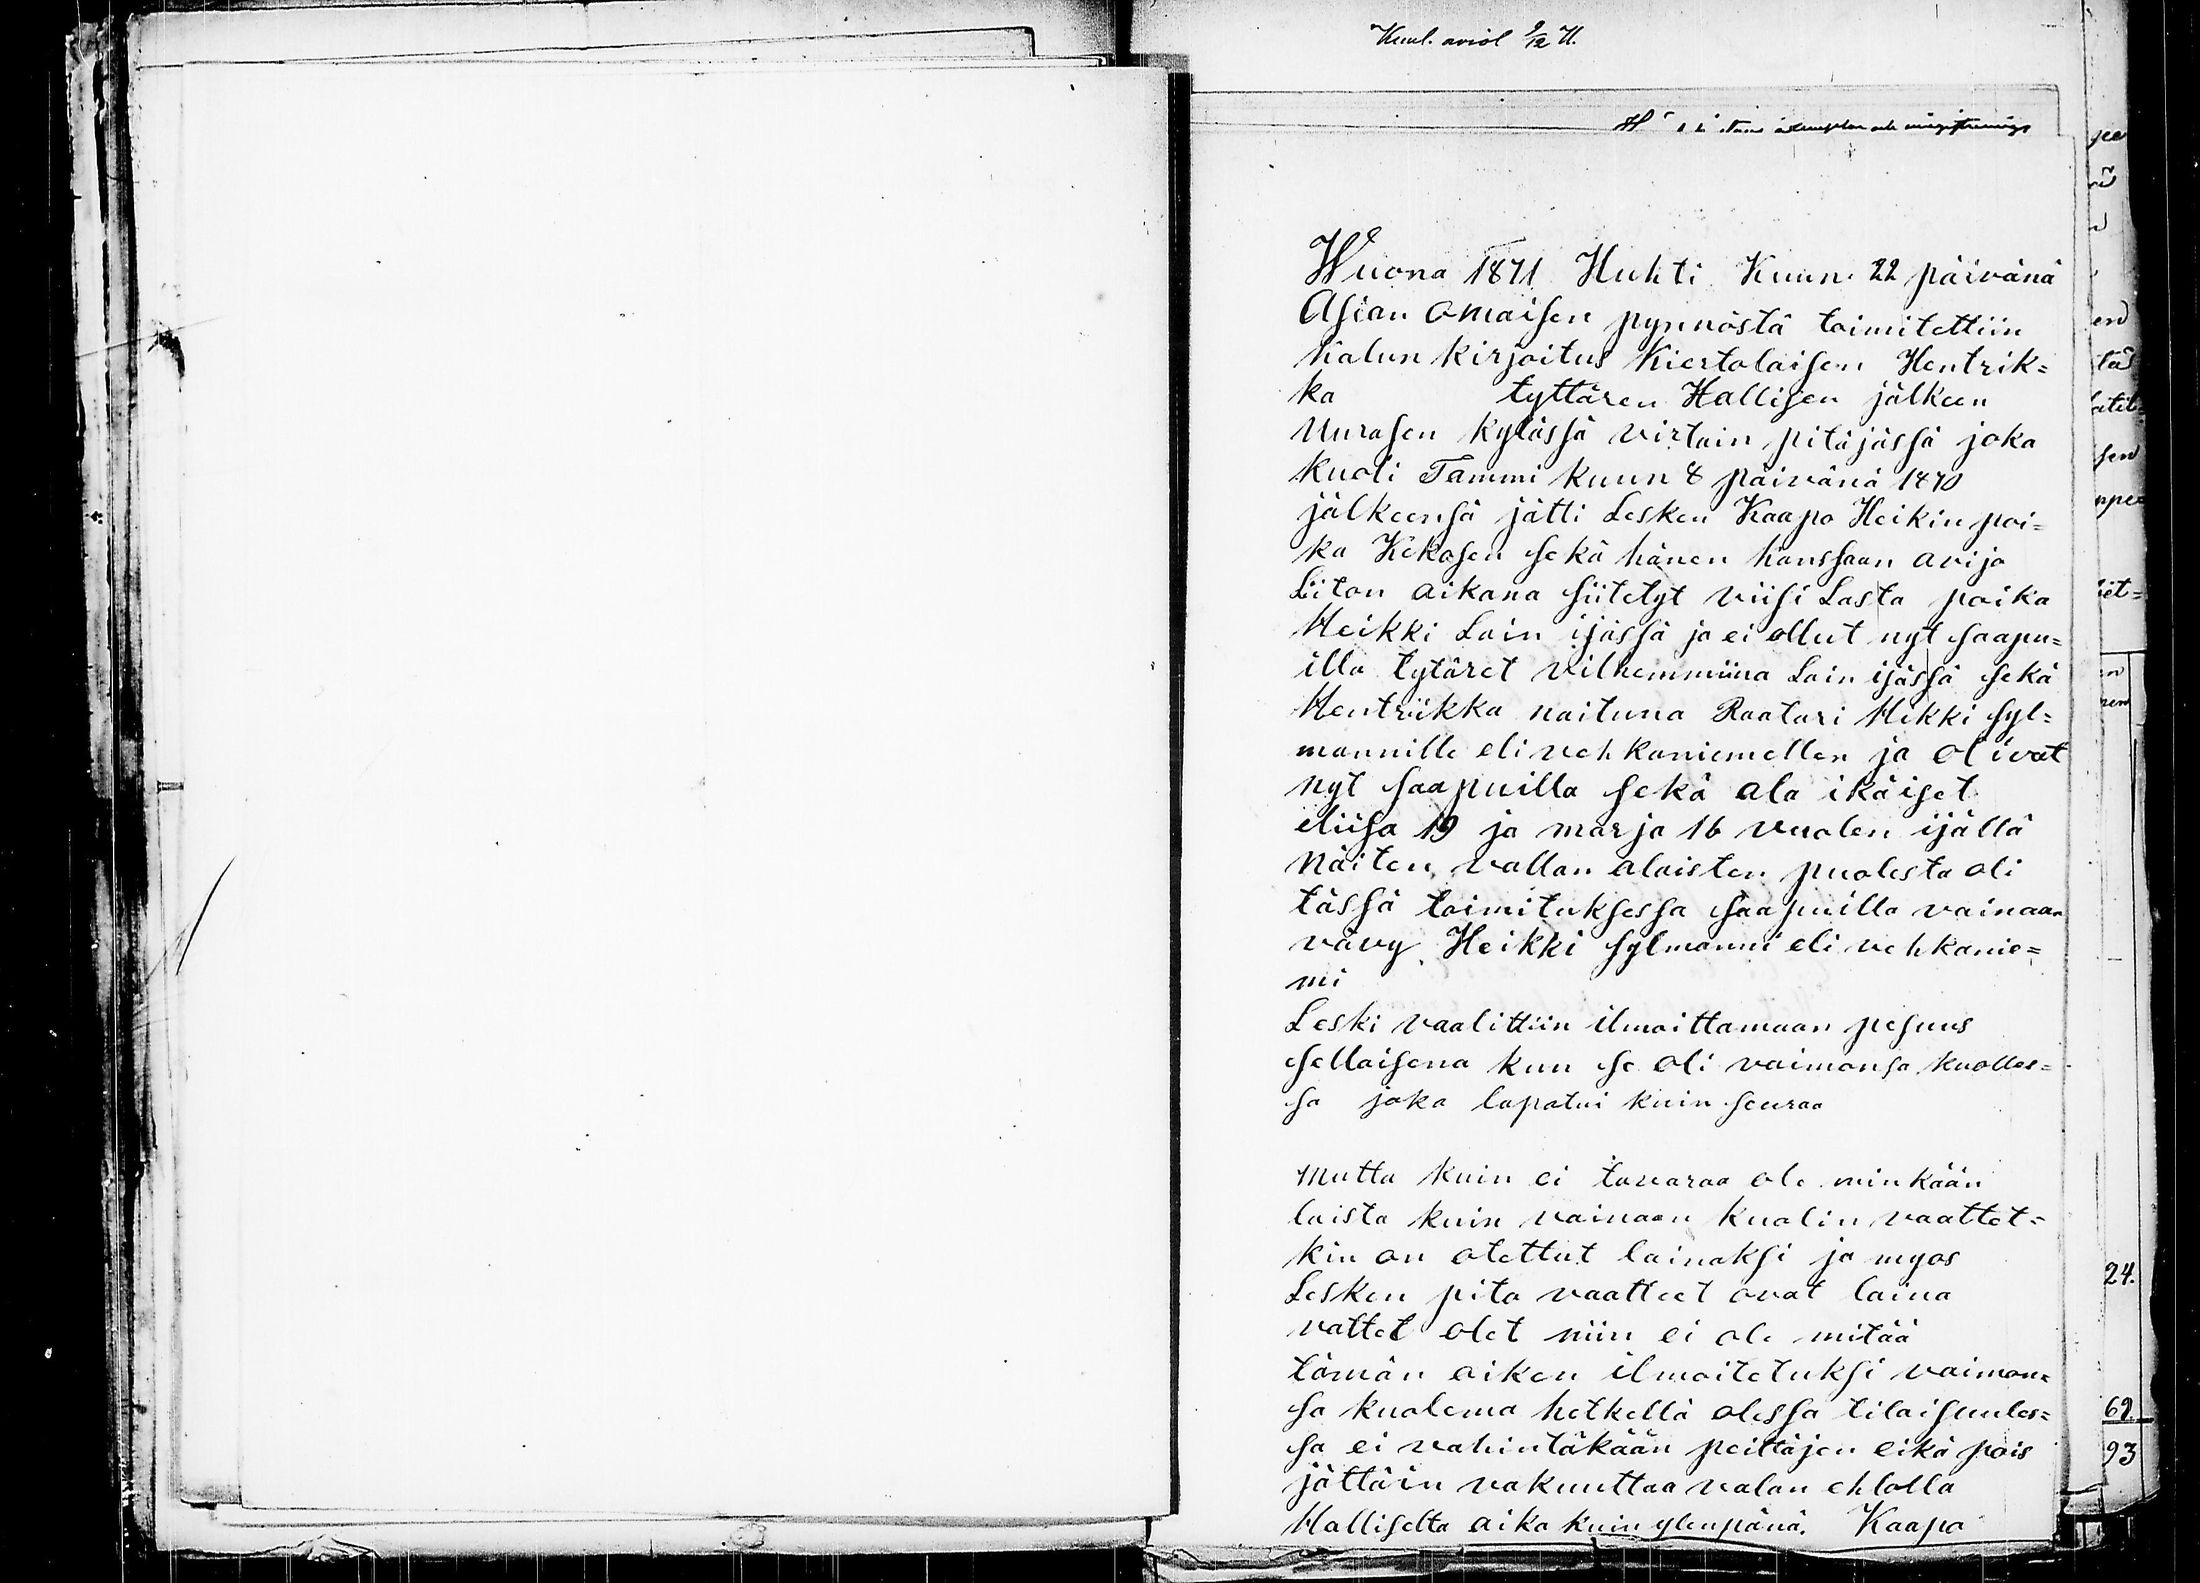 Kuul. aviol 9/12 71.
Wuona 1871 Huhti Kuun 22 päivänä
Asian omaisen pynnöstä toimitettiin
kalun kirjoitus Kiertolaisen Hentrik=
ka tyttären Hallisen jälkeen
Uurasen kylässä virtain pitäjässä joka
kuoli Tammi kuun 8 päivänä 1870
jälkeensä jätti Lesken Kaapo Heikin poi=
ka Kekosen sekä hänen kanssaan avijo
Liiton aikana siitetyt viisi Lasta poika
Heikki Lain ijässä ja ei ollut nyt saapu=
illa tytäret vilhemmiina Lain ijässä sekä
Hentriikka naituna Raatari Hikki syl=
mannille eli vehkaniemellen ja olivat
nyt saapuilla sekä ala ikäiset
eliisa 19 ja marja 16 vuolen ijällä
näiten vallan alaisten puolesta oli
tässä toimituksessa saapuilla vainaan
vävy Heikki sylmanni eli vehkanie=
mi
Leski vaalittiin ilmoittamaan pesuus
sellaisena kun se oli vaimonsa kuolles=
sa joka lapatui kuin seuraa
Mutta kuin ei tavaraa ole minkään
laista kuin vainaan kualin vaattet=
kin on otettut lainaksi ja myos
Lesken pito vaatteet ovat laina
vattet olet niin ei ole mitää
tämän aiken ilmoitetuksi vaimon=
sa kualema hetkellä olessa tilaisuules=
sa ei vahintäkään peittäjen eikä pois
jättäin vakuuttaa valan ehlolla
Halliselta aika kuin ylenpänä. Kaapo
24.
69.
93